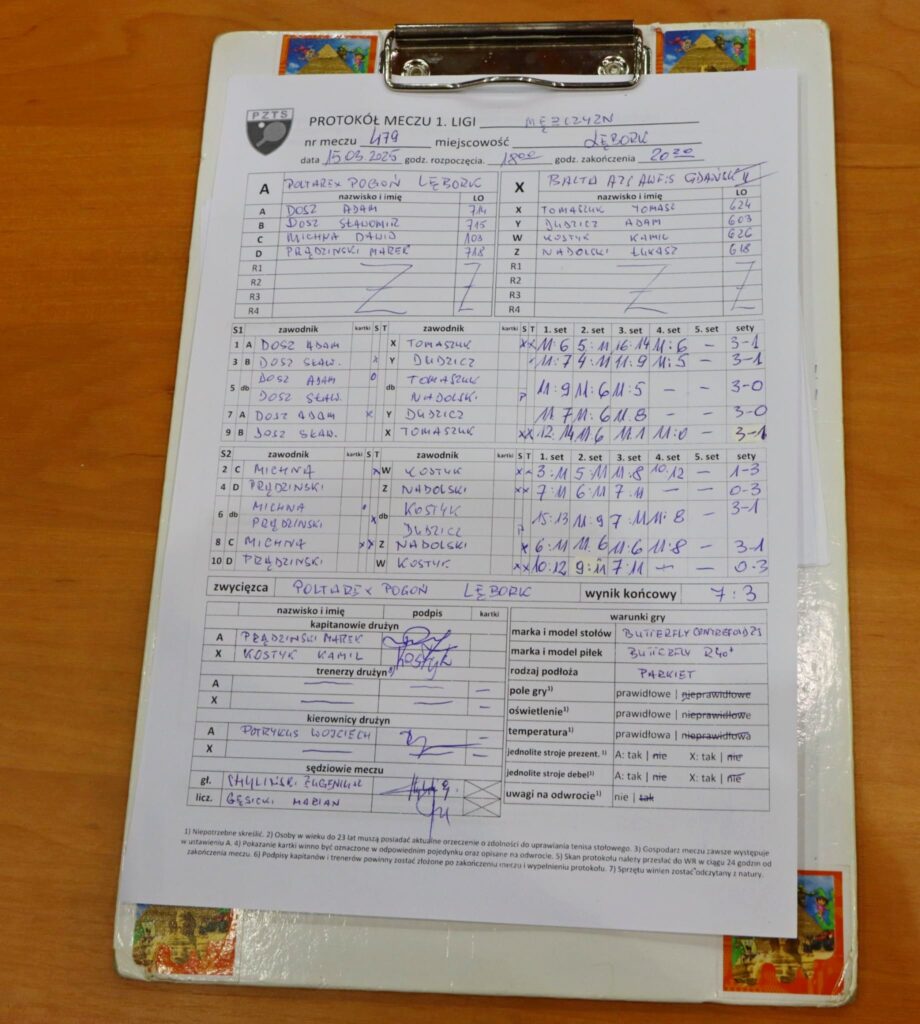 PZTS
PROTOKÓŁ MECZU 1. LIGI MĘŻCZYZN
nr meczu 479 miejscowość LĘBORK
data 15.03.2025 godz. rozpoczęcia. 18:00 godz. zakończenia 20 20
A POLTAREX POGOŃ LĘBORK X BALTA AZS AWFiS GDAŃSK II
nazwisko i imię LO nazwisko i imię LO
A DOSZ ADAM 714 X TOMASZUK TOMASZ 624
B DOSZ SŁAWOMIR 715 Y DUDZICZ ADAM 603
C MICHNA DAWID 103 W KOSTYK KAMIL 626
D PRĄDZINSKI MAREK 718 Z NADOLSKI ŁUKASZ 618
R1 R1
R2 R2
R3 R3
R4 R4
S1 zawodnik kartki S T zawodnik kartki S T 1. set 2. set 3. set 4. set 5. set sety
1 A DOSZ ADAM X TOMASZUK x x 11:6 5:11 16:14 11:6 – 3-1
3 B DOSZ SŁAW. x Y DUDZICZ x 11:7 4:11 11:9 11:5 – 3-1
5 db DOSZ ADAM DOSZ SŁAW. db TOMASZUK NADOLSKI P 11:9 11:6 11:5 – – 3-0
7 A DOSZ ADAM x Y DUDZICZ 11:7 11:6 11:8 – – 3-0
9 B DOSZ SŁAW. X TOMASZUK x x 12:14 11:6 11:1 11:0 – 3-1
S2 zawodnik kartki S T zawodnik kartki S T 1. set 2. set 3. set 4. set 5. set sety
2 C MICHNA x W KOSTYK x x 3:11 5:11 11:8 10:12 – 1-3
4 D PRĄDZINSKI Z NADOLSKI x x 7:11 6:11 7:11 – – 0-3
6 db MICHNA PRĄDZINSKI x db KOSTYK DUDZICZ P 15:13 11:9 7:11 11:8 – 3-1
8 C MICHNA x x Z NADOLSKI x 6:11 11:6 11:6 11:8 – 3-1
10 D PRĄDZINSKI W KOSTYK x x 10:12 9:11 7:11 – – 0-3
zwycięzca POLTAREX POGOŃ LĘBORK wynik końcowy 7:3
nazwisko i imię podpis kartki warunki gry
kapitanowie drużyn marka i model stołów BUTTERFLY CENTREFOLD 25
A PRĄDZINSKI MAREK
X KOSTYK KAMIL Kostyk marka i model piłek BUTTERFLY R40+
trenerzy drużyn rodzaj podłoża PARKIET
A – – – pole gry1) prawidłowe | nieprawidłowe
X – – – oświetlenie1) prawidłowe | nieprawidłowe
kierownicy drużyn temperatura1) prawidłowa | nieprawidłowa
A POTRYKUS WOJCIECH jednolite stroje prezent. 1) A: tak | nie X: tak | nie
X – –
sędziowie meczu jednolite stroje debel1) A: tak | nie X: tak | nie
gł. CHYLIŃSKI EUGENIUSZ uwagi na odwrocie1) nie | tak
licz. GĘSICKI MARIAN
1) Niepotrzebne skreślić. 2) Osoby w wieku do 23 lat muszą posiadać aktualne orzeczenie o zdolności do uprawiania tenisa stołowego. 3) Gospodarz meczu zawsze występuje
w ustawieniu A. 4) Pokazanie kartki winno być oznaczone w odpowiednim pojedynku oraz opisane na odwrocie. 5) Skan protokołu należy przesłać do WR w ciągu 24 godzin od
zakończenia meczu. 6) Podpisy kapitanów i trenerów powinny zostać złożone po zakończeniu meczu i wypełnieniu protokołu. 7) Sprzętu winien zostać odczytany z natury.